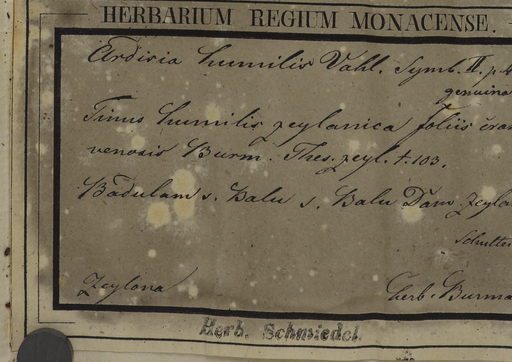 HERBARIUM REGIUM MONACENSE.
Ardisia humilis Vahl. Symb. II. p. 4
genuina
Tinus humilis zeylanica foliis
venosis Burm. Thes. zeyl. t. 103.
Badulam s. Balu s. Balu Dam. Zeylo
Schulte
Zeylona
herb. Burma
Herb. Schmiedel.